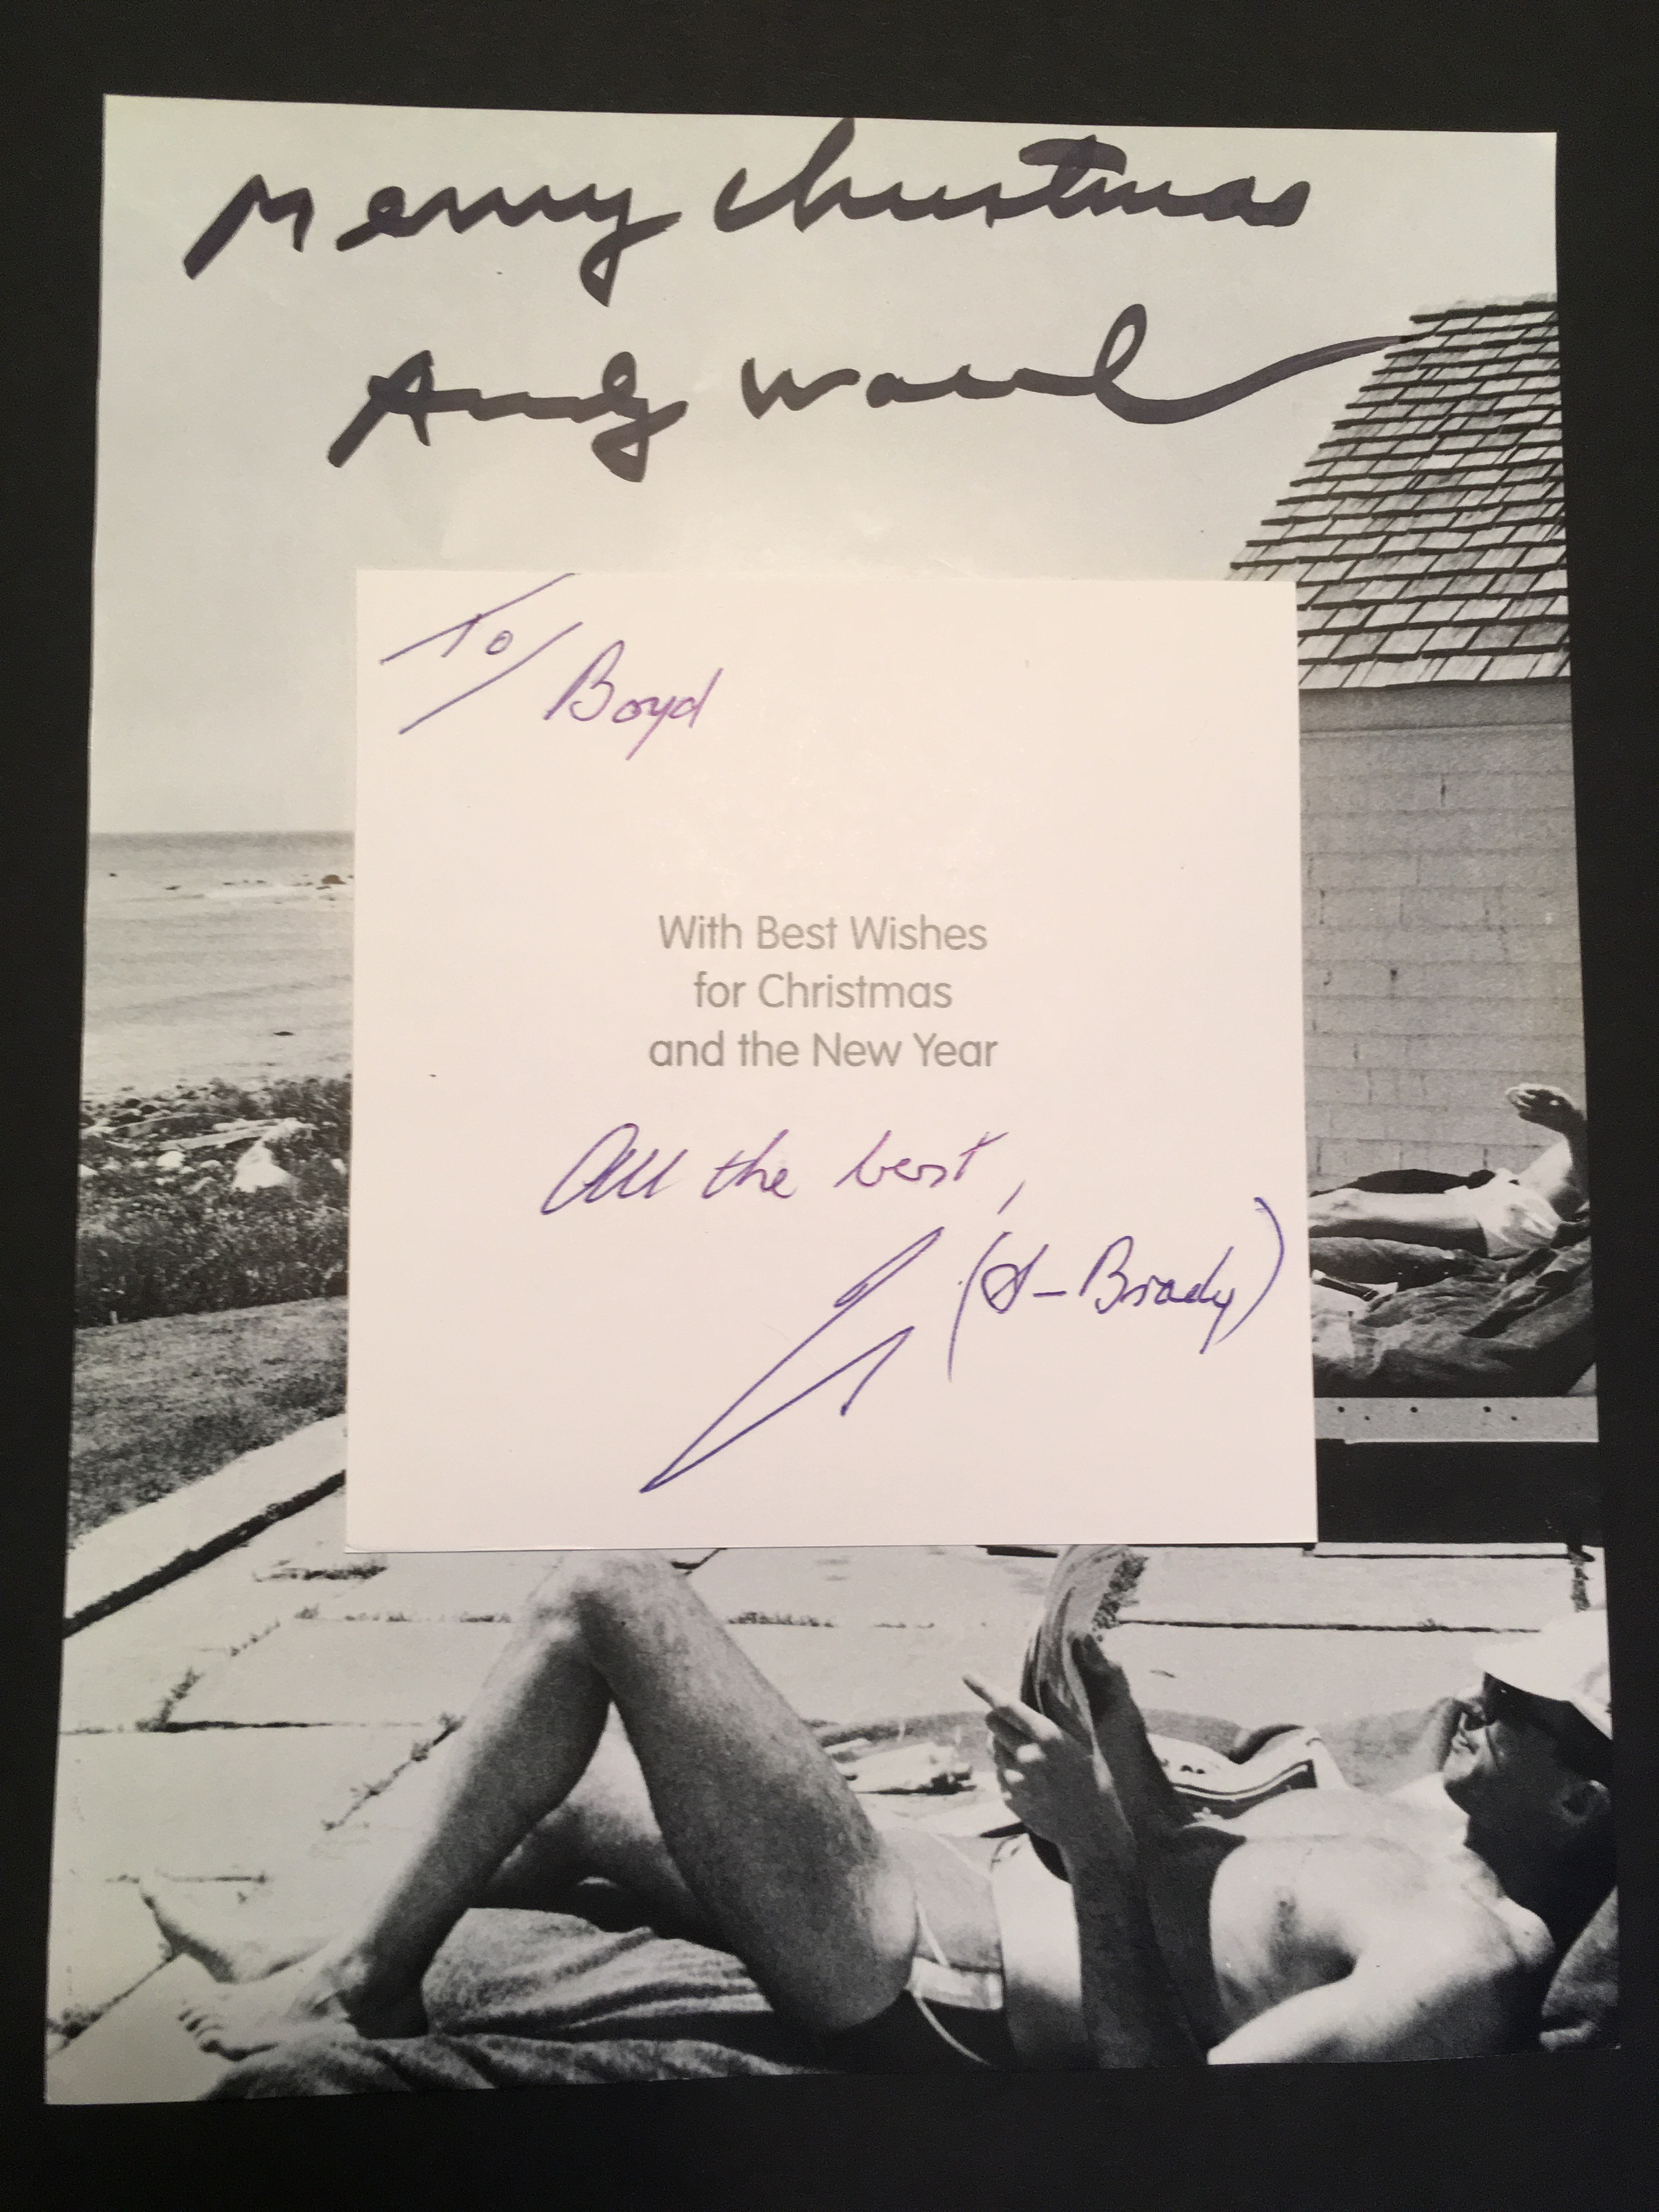 Merry Christmas
Andy Warhol
To/ Boyd
With Best Wishes
for Christmas
and the New Year
All the best,
Brady)